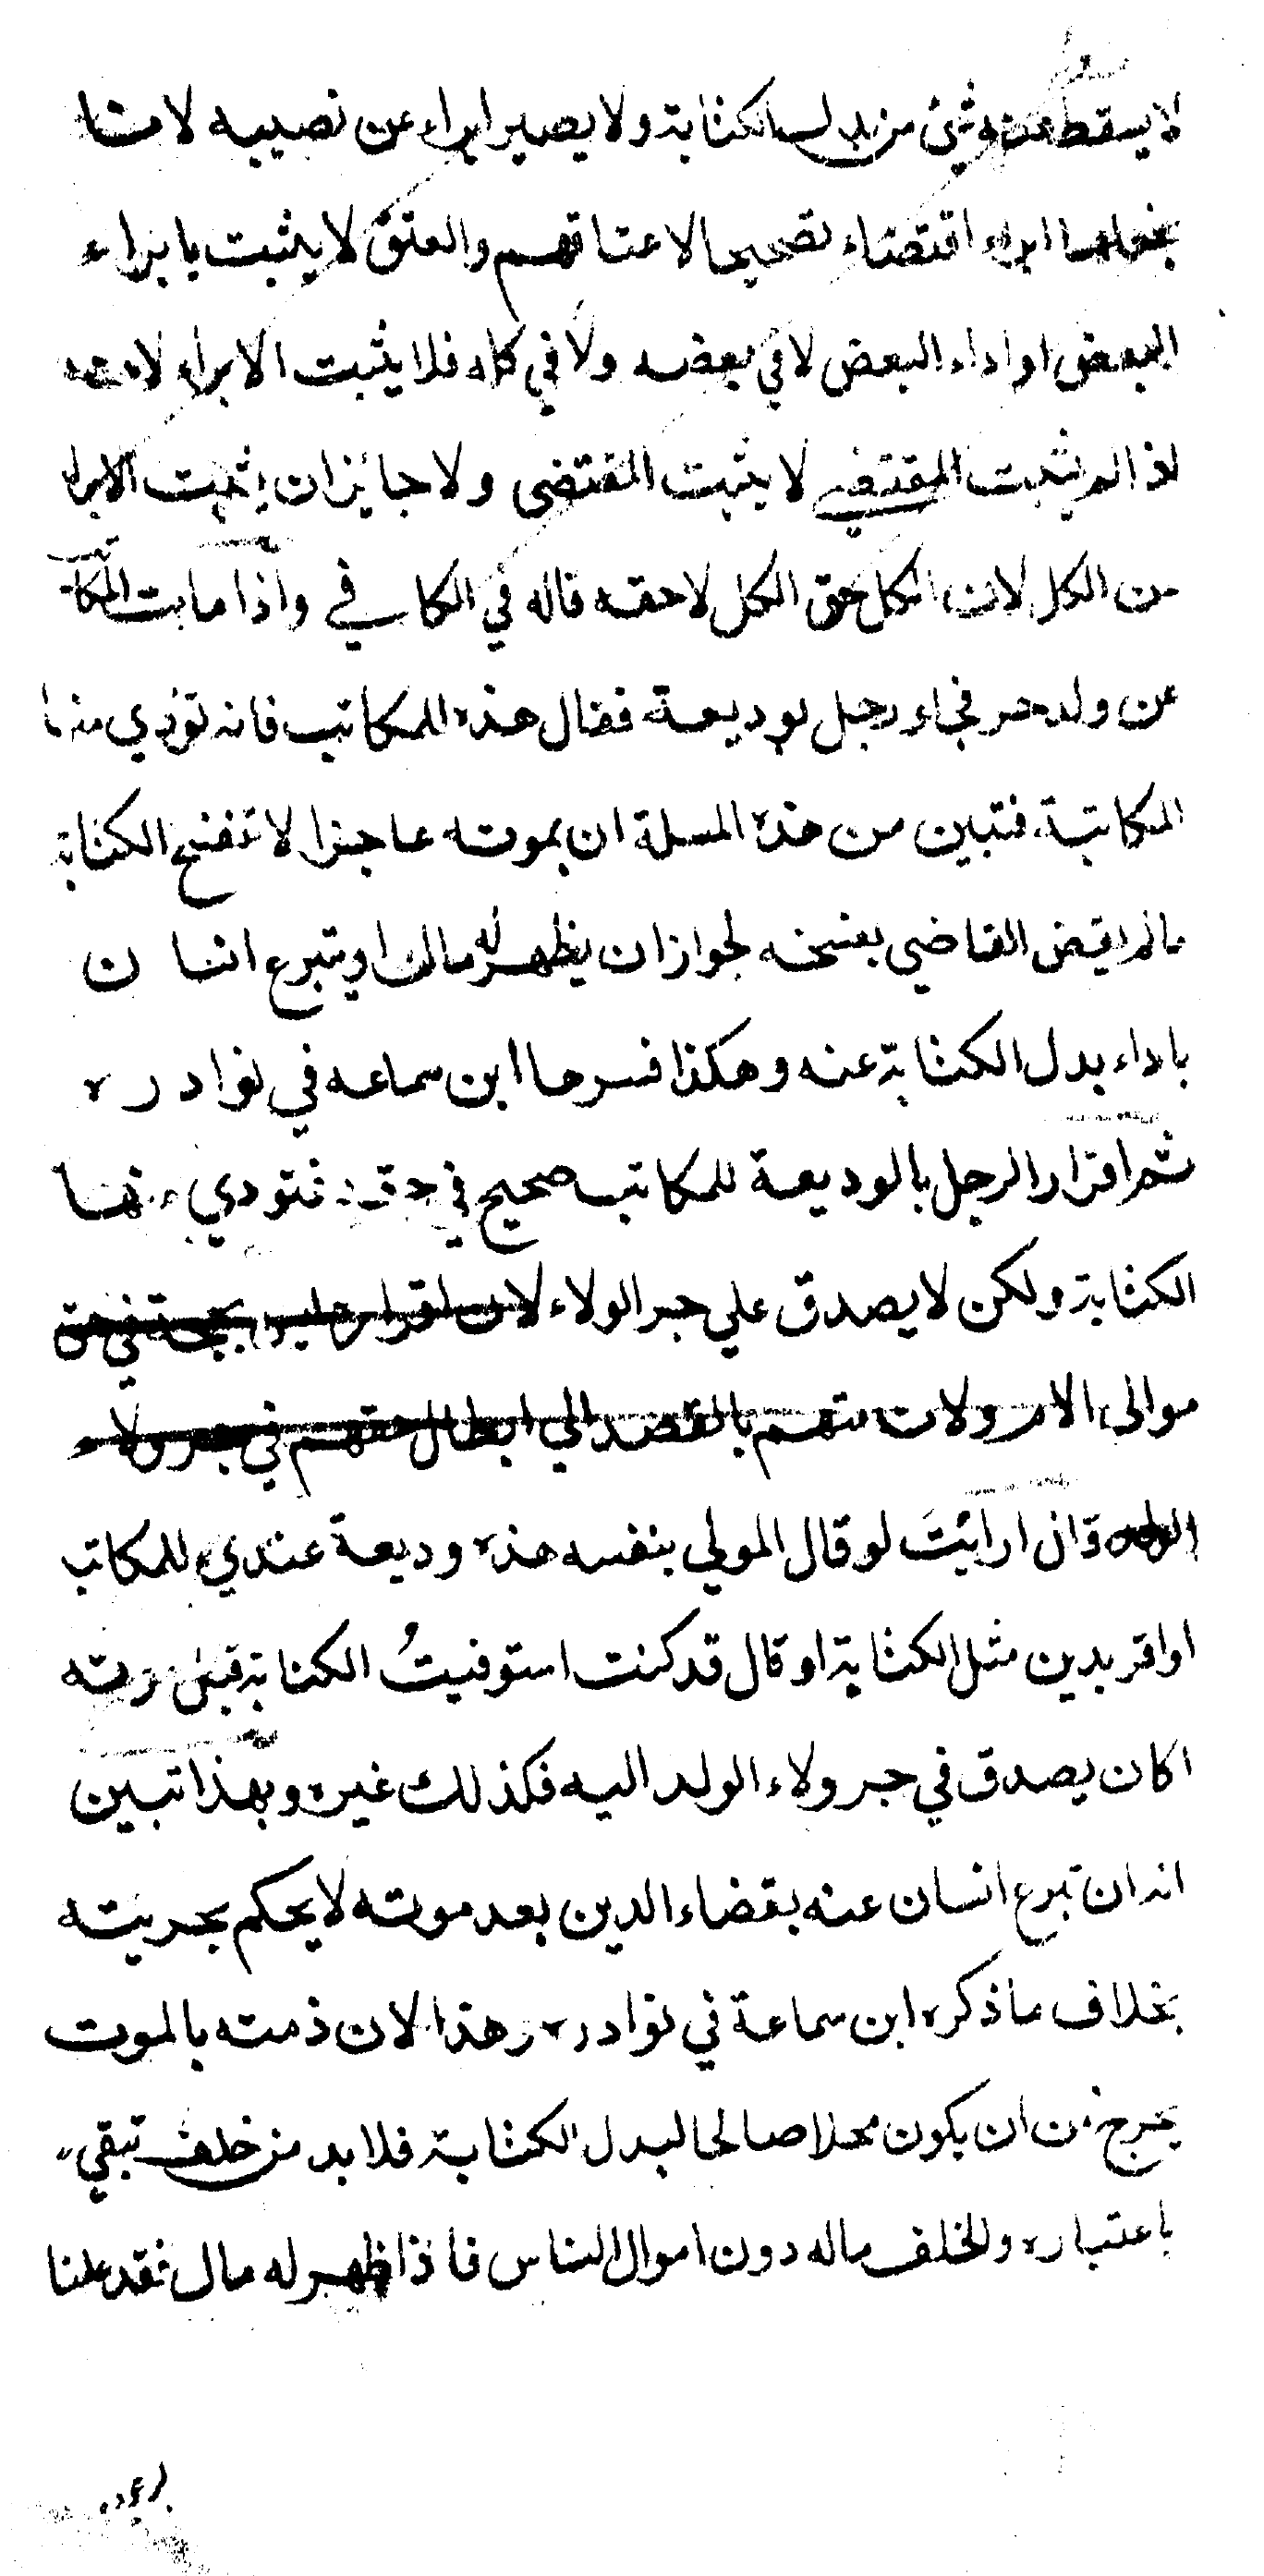 لا يسقط عنه شئ من بدل الكتابة ولا يصير ابراء عن نصيبه لانا
نجعلها ابراء اقتضاء تصحيحا لاعتاقهم والعتق لا يثبت بابراء
البعض او اداء البعض لا في بعضه ولا في كله فلا يثبت الابراء لانه
اذا لم يثبت المقتضي لا يثبت المقتضى ولا جايز ان يثبت الابراء
من الكل لان الكل حق الكل لا حقه قاله في الكافي واذا مات المكاتب
عن ولد حر فجاء رجل بوديعة فقال هذه للمكاتب فانه تؤدي منها
المكاتبة فتبين من هذه المسلة ان بموته عاجزا لا تنفسخ الكتابة
ما لم يقض القاضي بفسخه لجواز ان يظهر له مال او يتبرع انسان
باداء بدل الكتابة عنه وهكذا فسرها ابن سماعه في نوادره
ثم اقرار الرجل بالوديعة للمكاتب صحيح في حقه فتودي منها
الكتابة ولكن لا يصدق علي جر الولاء لان اقراره ليس بحجة في حق
موالى الام ولانه متهم بالقصد الي ابطال حقهم في جر ولاء
الولد قال ارايتَ لو قال المولي بنفسه هذه وديعة عندي للمكاتب
او اقر بدين مثل الكتابة او قال قد كنت استوفيتُ الكتابة قبل موته
اكان يصدق في جر ولاء الولد اليه فكذلك غيره وبهذا تبين
انه ان تبرع انسان عنه بقضاء الدين بعد موته لا يحكم بحريته
بخلاف ما ذكره ابن سماعة في نوادره وهذا لان ذمته بالموت
يخرج من ان يكون محلا صالحا لبدل الكتابة فلا بد من خلف تبقي
باعتباره والخلف ماله دون اموال الناس فاذا ظهر له مال فقد علمنا